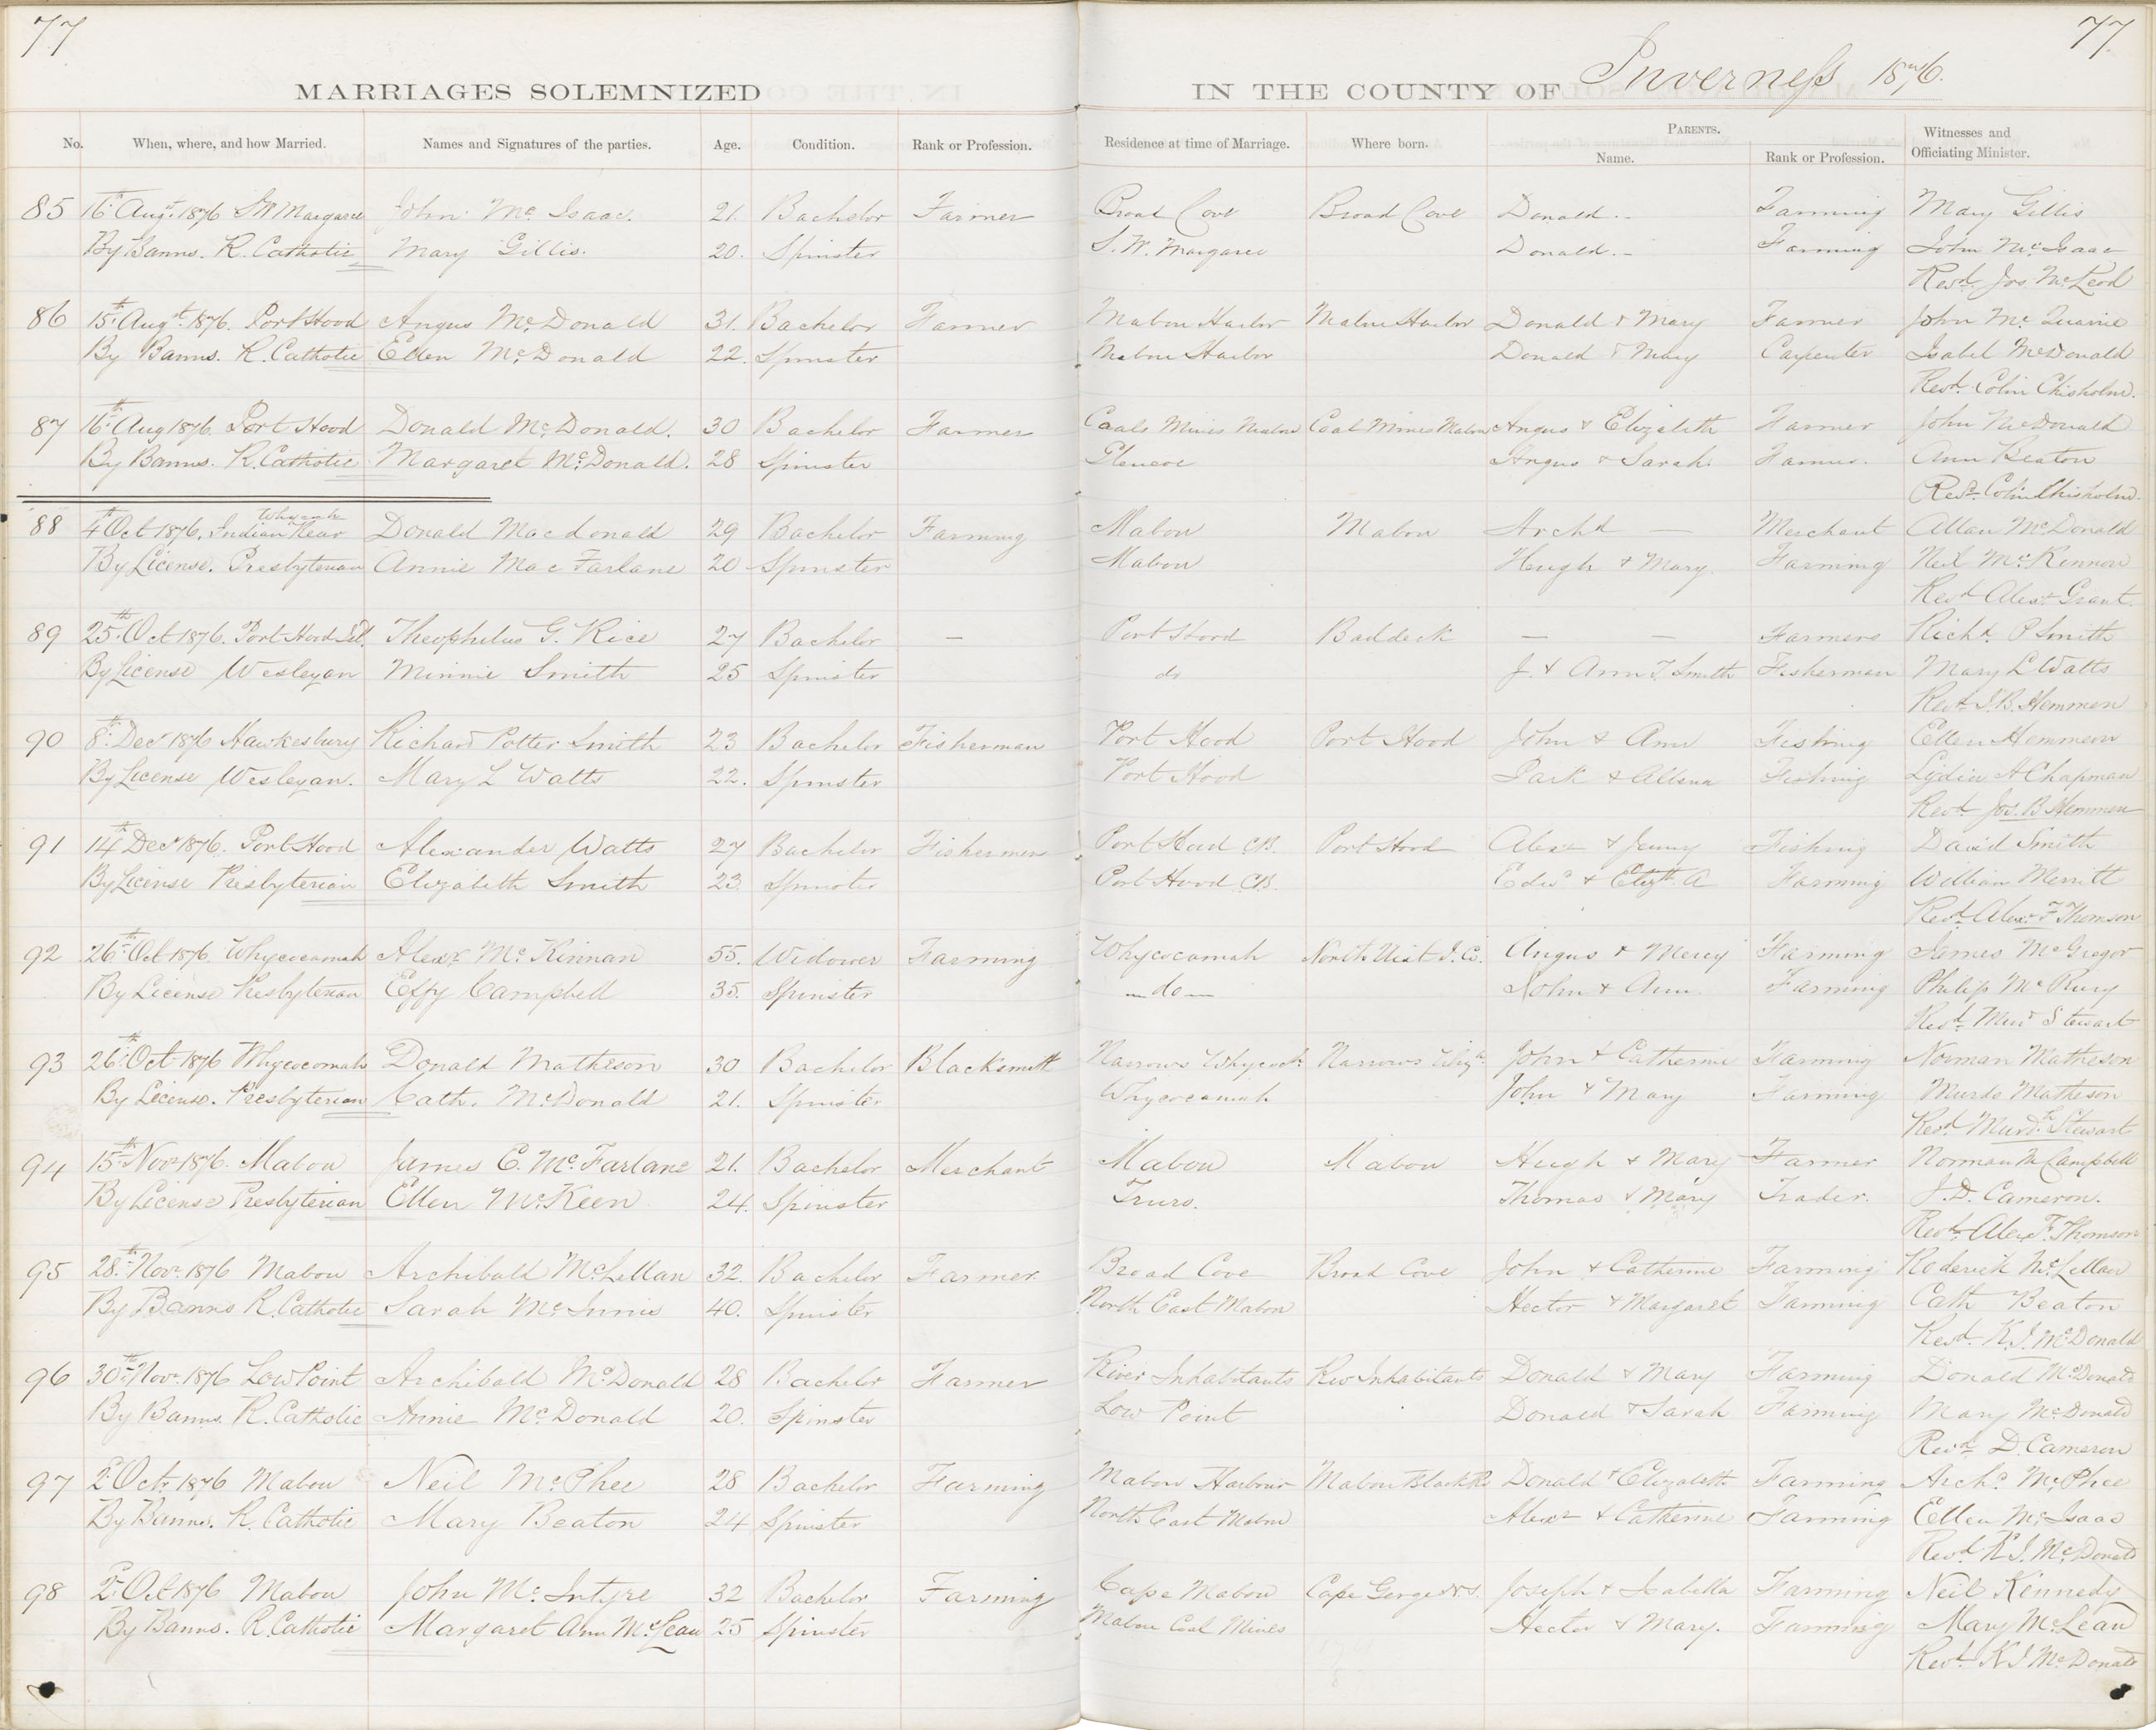 77
77
MARRIAGES SOLEMNIZED IN THE COUNTY OF Inverness 1876.
No. When, where, and how Married. Names and Signatures of the parties. Age. Condition. Rank or Profession. Residence at time of Marriage. Where born. PARENTS. Name. Rank or Profession. Witnesses and Officiating Minister.
85 16th Augt. 1876 S W Margaree John Mc Isaac. 21. Bachelor Farmer Broad Cove Broad Cove Donald.- Farming Mary Gillis
By Banns. R. Catholic Mary Gillis. 20. Spinster S. W. Margaree Donald.- Farming John McIsaac
Revd. Jos. McLeod
86 15th Augt. 1876. Port Hood Angus McDonald 31. Bachelor Farmer Mabou Harbor Mabou Harbor Donald & Mary Farmer John Mc
By Banns. R. Catholic Ellen McDonald 22. Spinster Mabou Harbor Donald & Mary Carpenter Isabel McDonald
Revd. Colin Chisholm.
87 16th Aug 1876. Port Hood Donald McDonald. 30 Bachelor Farmer Coals Mines Mabou Coal Mines Mabou Angus & Elizabeth Farmer John McDonald
By Banns. R. Catholic Margaret McDonald. 28 Spinster Glencoe Angus & Sarah. Farmer. Ann Beaton
Revd. Colin Chisholm.
88 4th Oct 1876. Indian Rear Donald Macdonald 29 Bachelor Farming Mabou Mabou Archd — Merchant Allan McDonald
By License. Presbyterian Annie MacFarlane 20 Spinster Mabou Hugh & Mary. Farming Neil McKinnon
Revd Alexr Grant.
89 25th Oct 1876. Port Hood Isl. Theophilus G. Rice 27 Bachelor — Port Hood Baddeck — — Farmers Richd. P Smith
By License Wesleyan Minnie Smith 25 Spinster do J. & Ann T. Smith Fisherman Mary L Watts
Revd. J. B. Hemmeon
90 8th Decr 1876 Hawkesbury Richard Potter Smith 23 Bachelor Fisherman Port Hood Port Hood John & Ann Fishing Ellen Hemmeon
By License Wesleyan. Mary L Watts 22. Spinster Port Hood Fishing Lydia A Chapman
Revd. Jos. B. Hemmeon
91 14th Decr 1876. Port Hood Alexander Watts 27 Bachelor Fishermen Port Hood C.B. Port Hood Alexr & Jenny Fishing David Smith
By License Presbyterian Elizabeth Smith 23. Spinster Port Hood C.B. Edwd & Elizth. A Farming William Merritt
Revd. Alexr F Thomson
92 26th Oct 1876 Whycocomah Alexr. McKinnan 55. Widower Farming Whycocomah North Uist Angus & Mercy Farming James McGregor
By License Presbyterian Effy Campbell 35. Spinster —do— John & Ann. Farming Philip McRury
Revd. Murd Stewart
93 26th Oct 1876 Whycocomah Donald Matheson 30 Bachelor Blacksmith Narrows Whycoch. Narrows Why John & Catherine Farming Norman Matheson
By License. Presbyterian Cath. McDonald 21. Spinster Whycocomah John & Mary Farming Murdo Matheson
Revd. Murdh. Stewart
94 15th Novr 1876. Mabou James E. McFarlane 21. Bachelor Merchant Mabou Mabou Hugh & Mary Farmer Norman Campbell
By License Presbyterian Ellen McKeen 24. Spinster Truro. Thomas & Mary Trader. J. D. Cameron.
Revd. Alexr F. Thomson
95 28th Novr. 1876 Mabou Archibald McLellan 32. Bachelor Farmer. Broad Cove Broad Cove John & Catherine Farming Roderick McLellan
By Banns R. Catholic Sarah McInnis 40. Spinster North East Mabou Hector & Margaret Farming Cath Beaton
Revd. K. J. McDonald
96 30th Novr. 1876 Low Point Archibald McDonald 28 Bachelor Farmer River Inhabitants Riv Inhabitants Donald & Mary Farming Donald McDonald
By Banns. R. Catholic Annie McDonald 20. Spinster Low Point Donald & Sarah Farming Mary McDonald
Revd. D. Cameron
97 2d Octr 1876 Mabou Neil McPhee 28 Bachelor Farming Mabou Harbour Mabou Donald & Elizabeth Farming Archd. McPhee
By Banns. R. Catholic Mary Beaton 24 Spinster North East Mabou Alexr & Catherine Farming Ellen McIsaac
Revd. K J. McDonald
98 2d Oct 1876 Mabou John McIntyre 32 Bachelor Farming Cape Mabou Cape George N.S. Joseph & Isabella Farming Neil Kennedy
By Banns. R. Catholic Margaret Ann McLean 25 Spinster Mabou Coal Mines Hector & Mary. Farming Mary McLean
Revd. K J McDonald